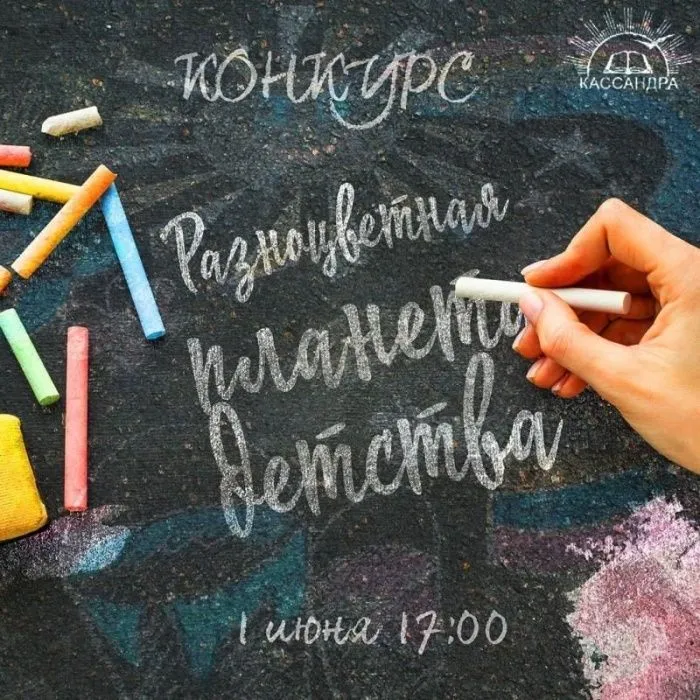 конкурс
КАССАНДРА
Разноцветная
планета
детства
1 июня 17:00